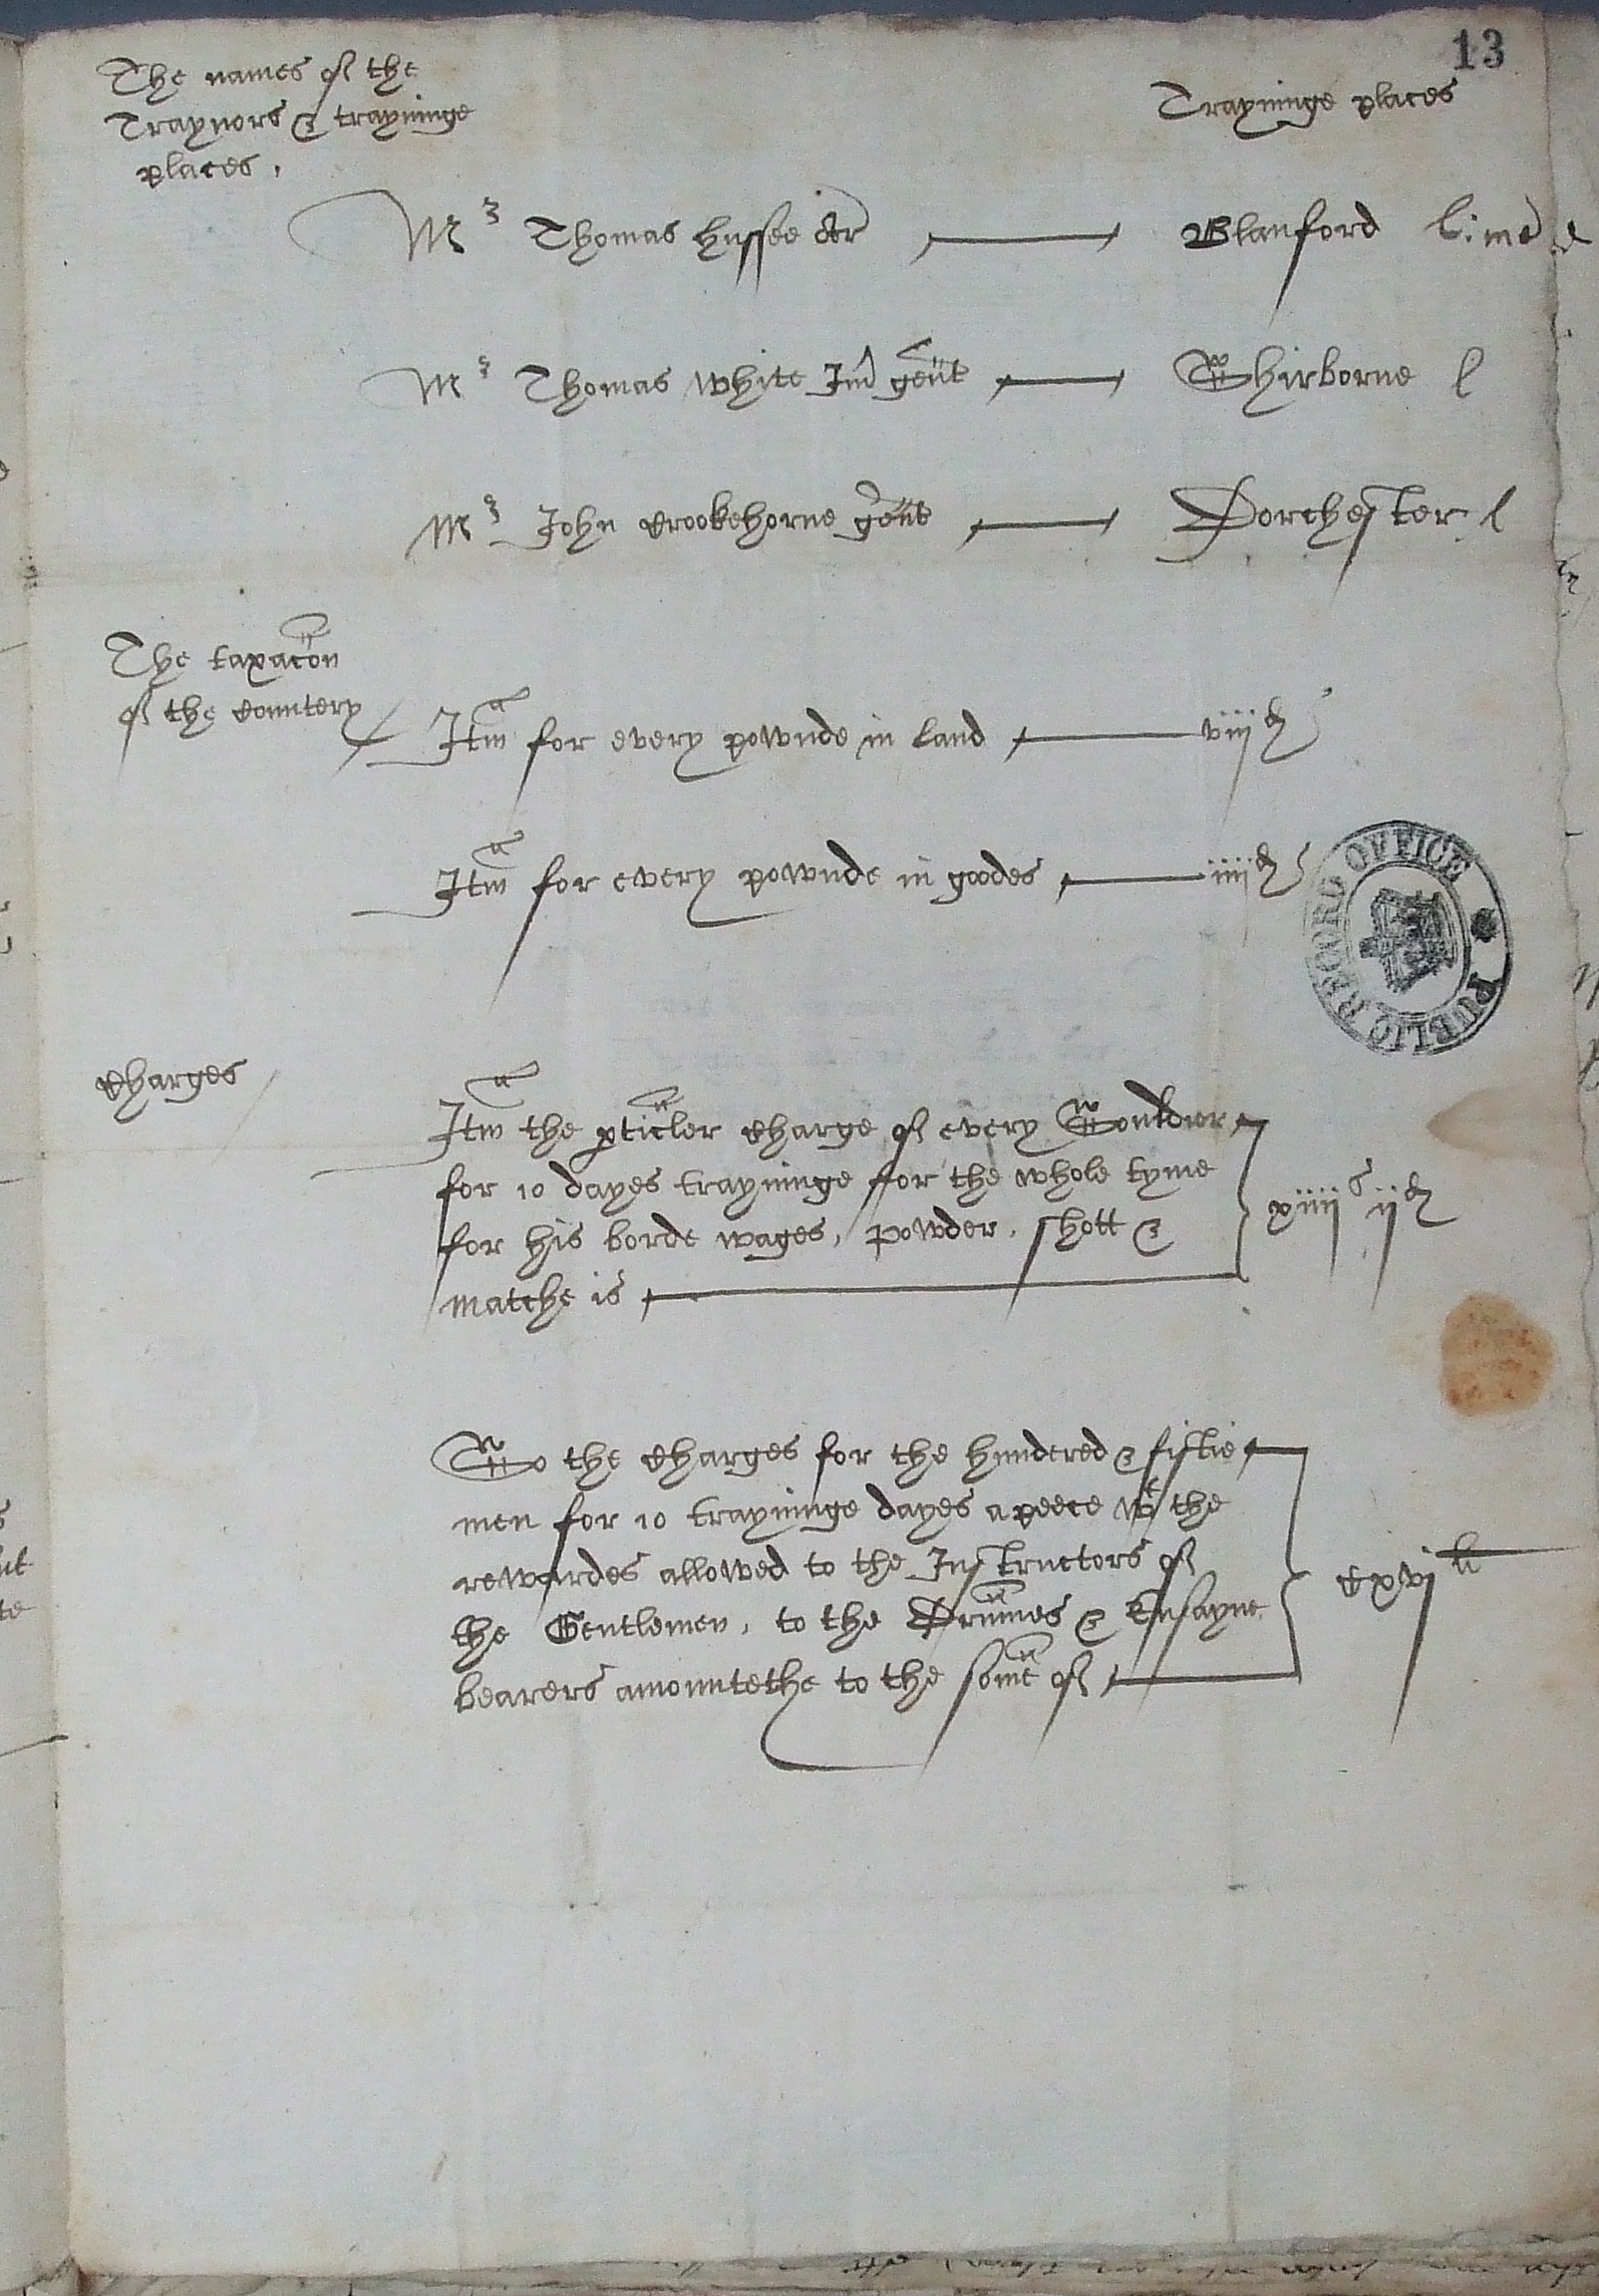 13
The names of the
Traynors & trayninge
places,
Trayninge places
Mr Thomas Hussee Ar Blanford l: men
Mr Thomas White Iun̄ gent Shirborne l
Mr John Crookehorne gent Dorchester l
The taxacōn
of the Countery
Itm̄ for every pownde in land viijd
Itm̄ for every pownde in goodes iiijd
PUBLIC RECORD OFFICE
Charges
Itm̄ the pticler Charge of every Souldier
for 10 dayes trayninge for the whole tyme
for his borde wages, powder, shott &
matche is
xiiijs ijd
So the Charges for the hundered & fiftie
men for 10 trayninge dayes a peece wt the
rewardes allowed to the Instructors of
the Gentlemen, to the Drūmes & Ensayne
bearers amountethe to the some of
Cxvjli